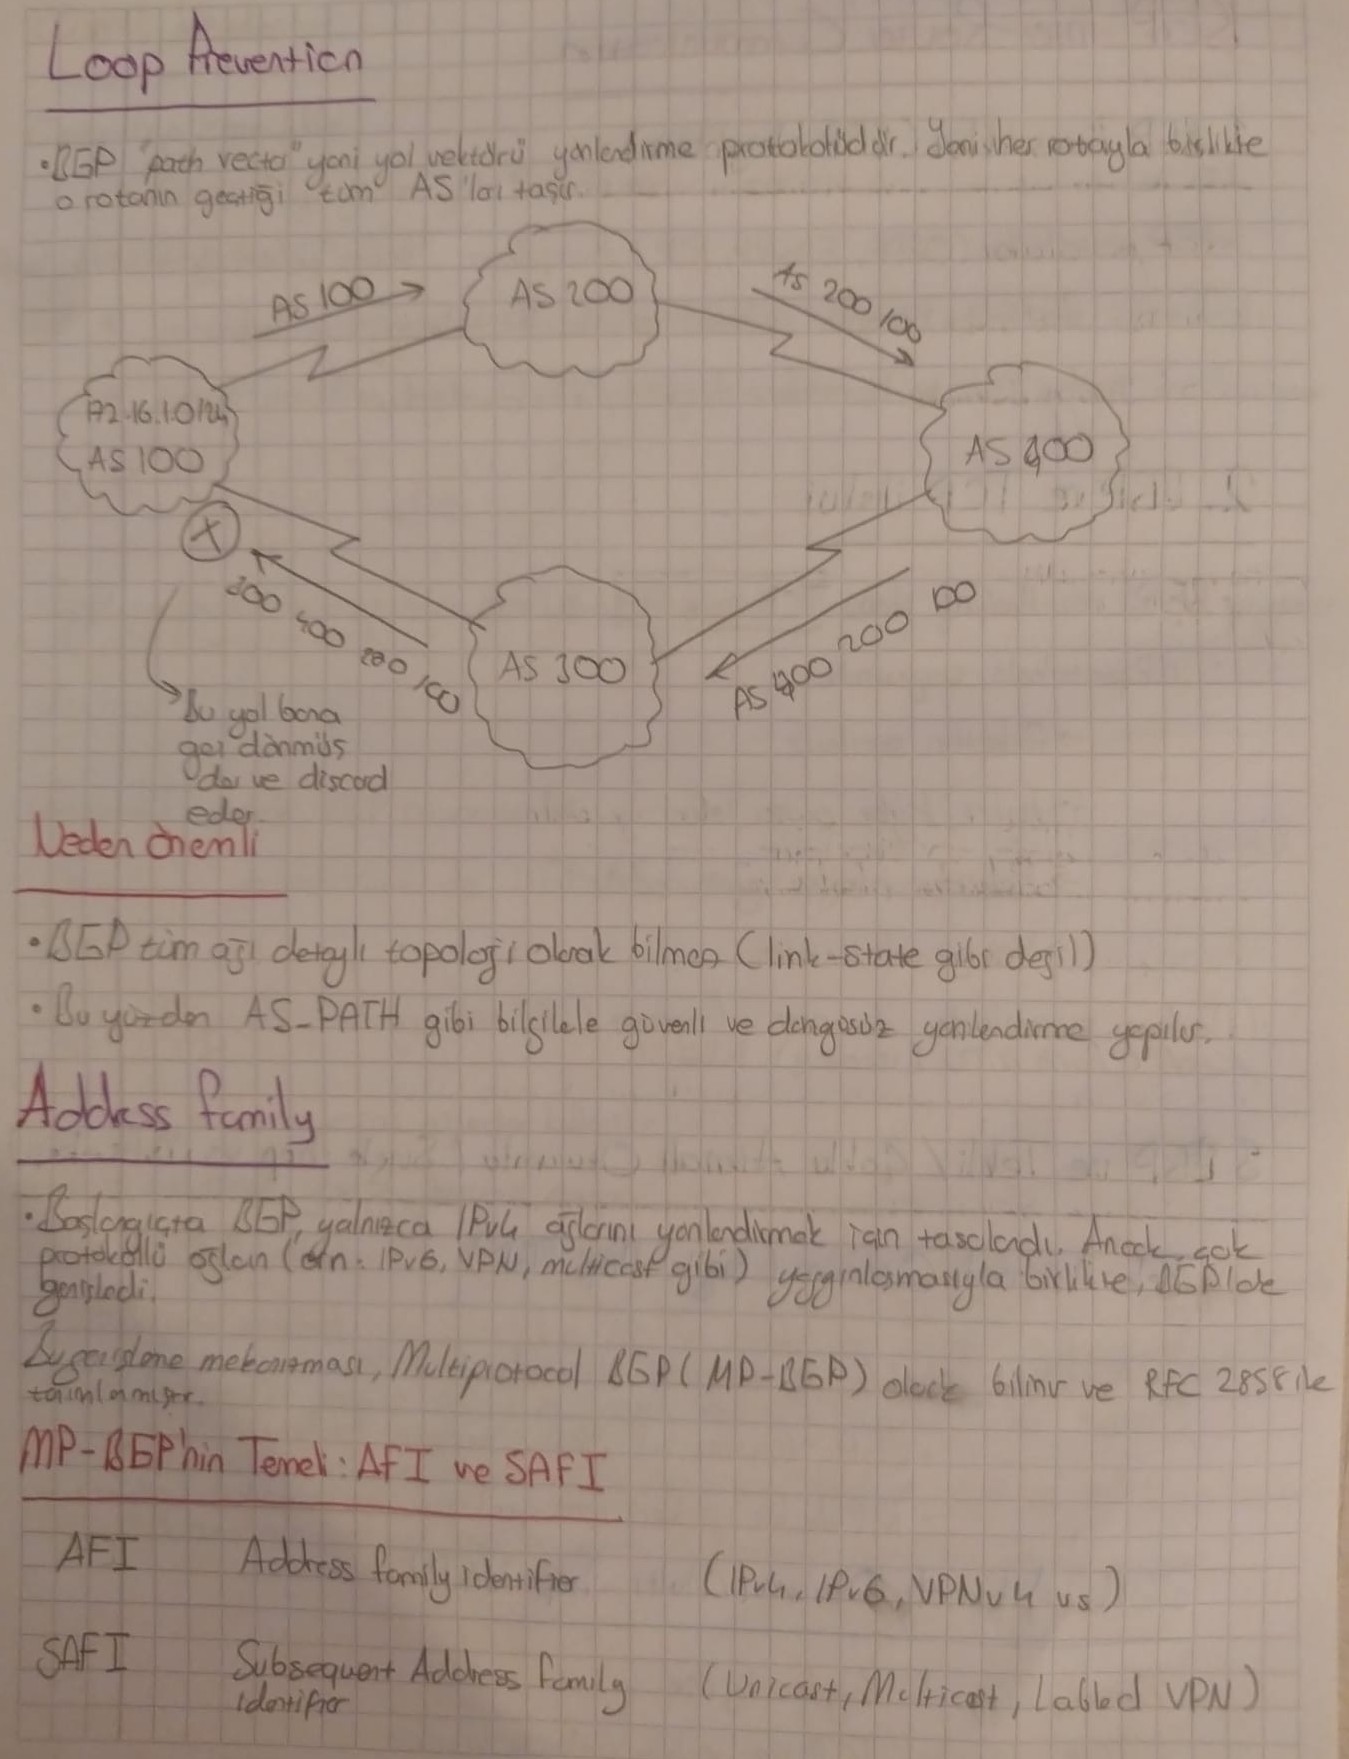 Loop Prevention
•BGP "path vector" yani yol vektörü yönlendirme protokolüdür. Yani her rotayla birlikte
o rotanın geçtiği tüm AS'ları taşır.
AS 100
AS 200
AS 200 100
172.16.1.0/24
AS 100
AS 400
300 400 200 100
AS 300
AS 400 200 100
Bu yol bana
geri dönmüş
der ve discard
eder.
Neden önemli
• BGP tüm ağı detaylı topoloji olarak bilmez (link-state gibi değil)
• Bu yüzden AS-PATH gibi bilgilerle güvenli ve döngüsüz yönlendirme yapılır.
Address family
•Başlangıçta BGP, yalnızca IPv4 ağlarını yönlendirmek için tasarlandı. Ancak çok
protokollü ağların (örn: IPv6, VPN, multicast gibi) yaygınlaşmasıyla birlikte, BGP'de
genişledi.
Bu genişleme mekanizması, Multiprotocol BGP (MP-BGP) olarak bilinir ve RFC 2858 ile
tanımlanmıştır.
MP-BGP'nin Temeli: AFI ve SAFI
AFI Address family identifier (IPv4, IPv6, VPNv4 vs)
SAFI Subsequent Address family (Unicast, Multicast, Labled VPN)
identifier